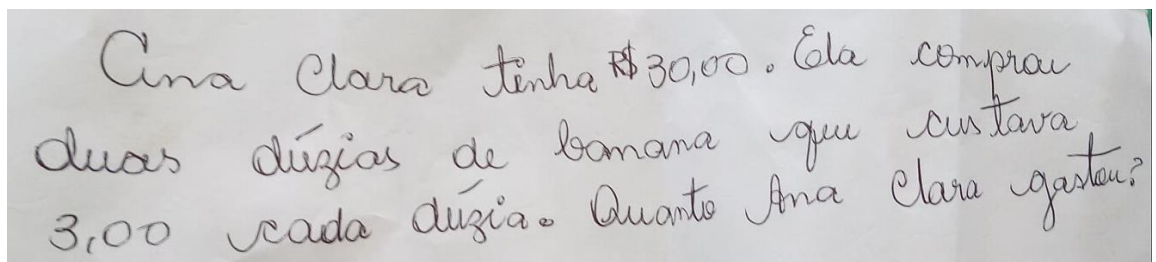 Ana Clara tinha R$30,00. Ela comprou
duas dúzias de banana que custava
3,00 cada dúzia. Quanto Ana Clara gastou?